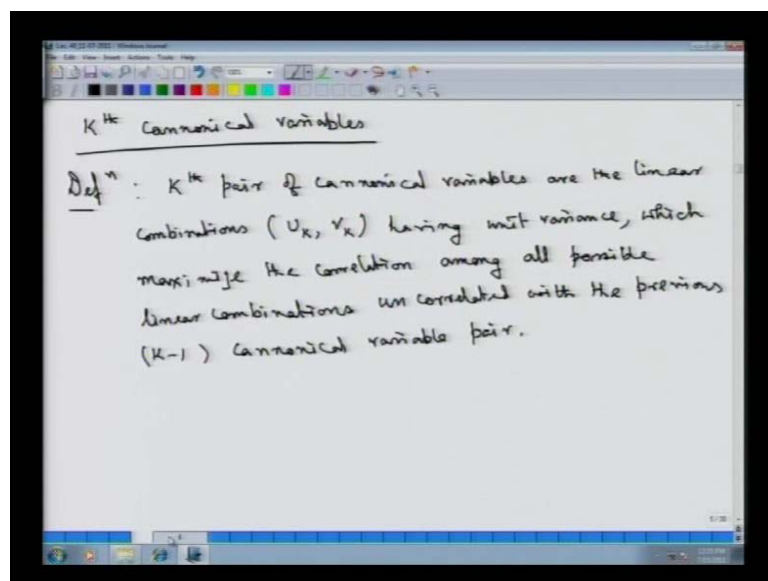 Lec 40,22-07-2011 - Windows Journal
File Edit View Insert Actions Tools Help
Kth Cannonical variables
Defn : Kth pair of cannonical variables are the linear
combinations (UK, VK) having unit variance, which
maximize the correlation among all possible
linear combinations un correlated with the previous
(K-1) cannonical variable pair.